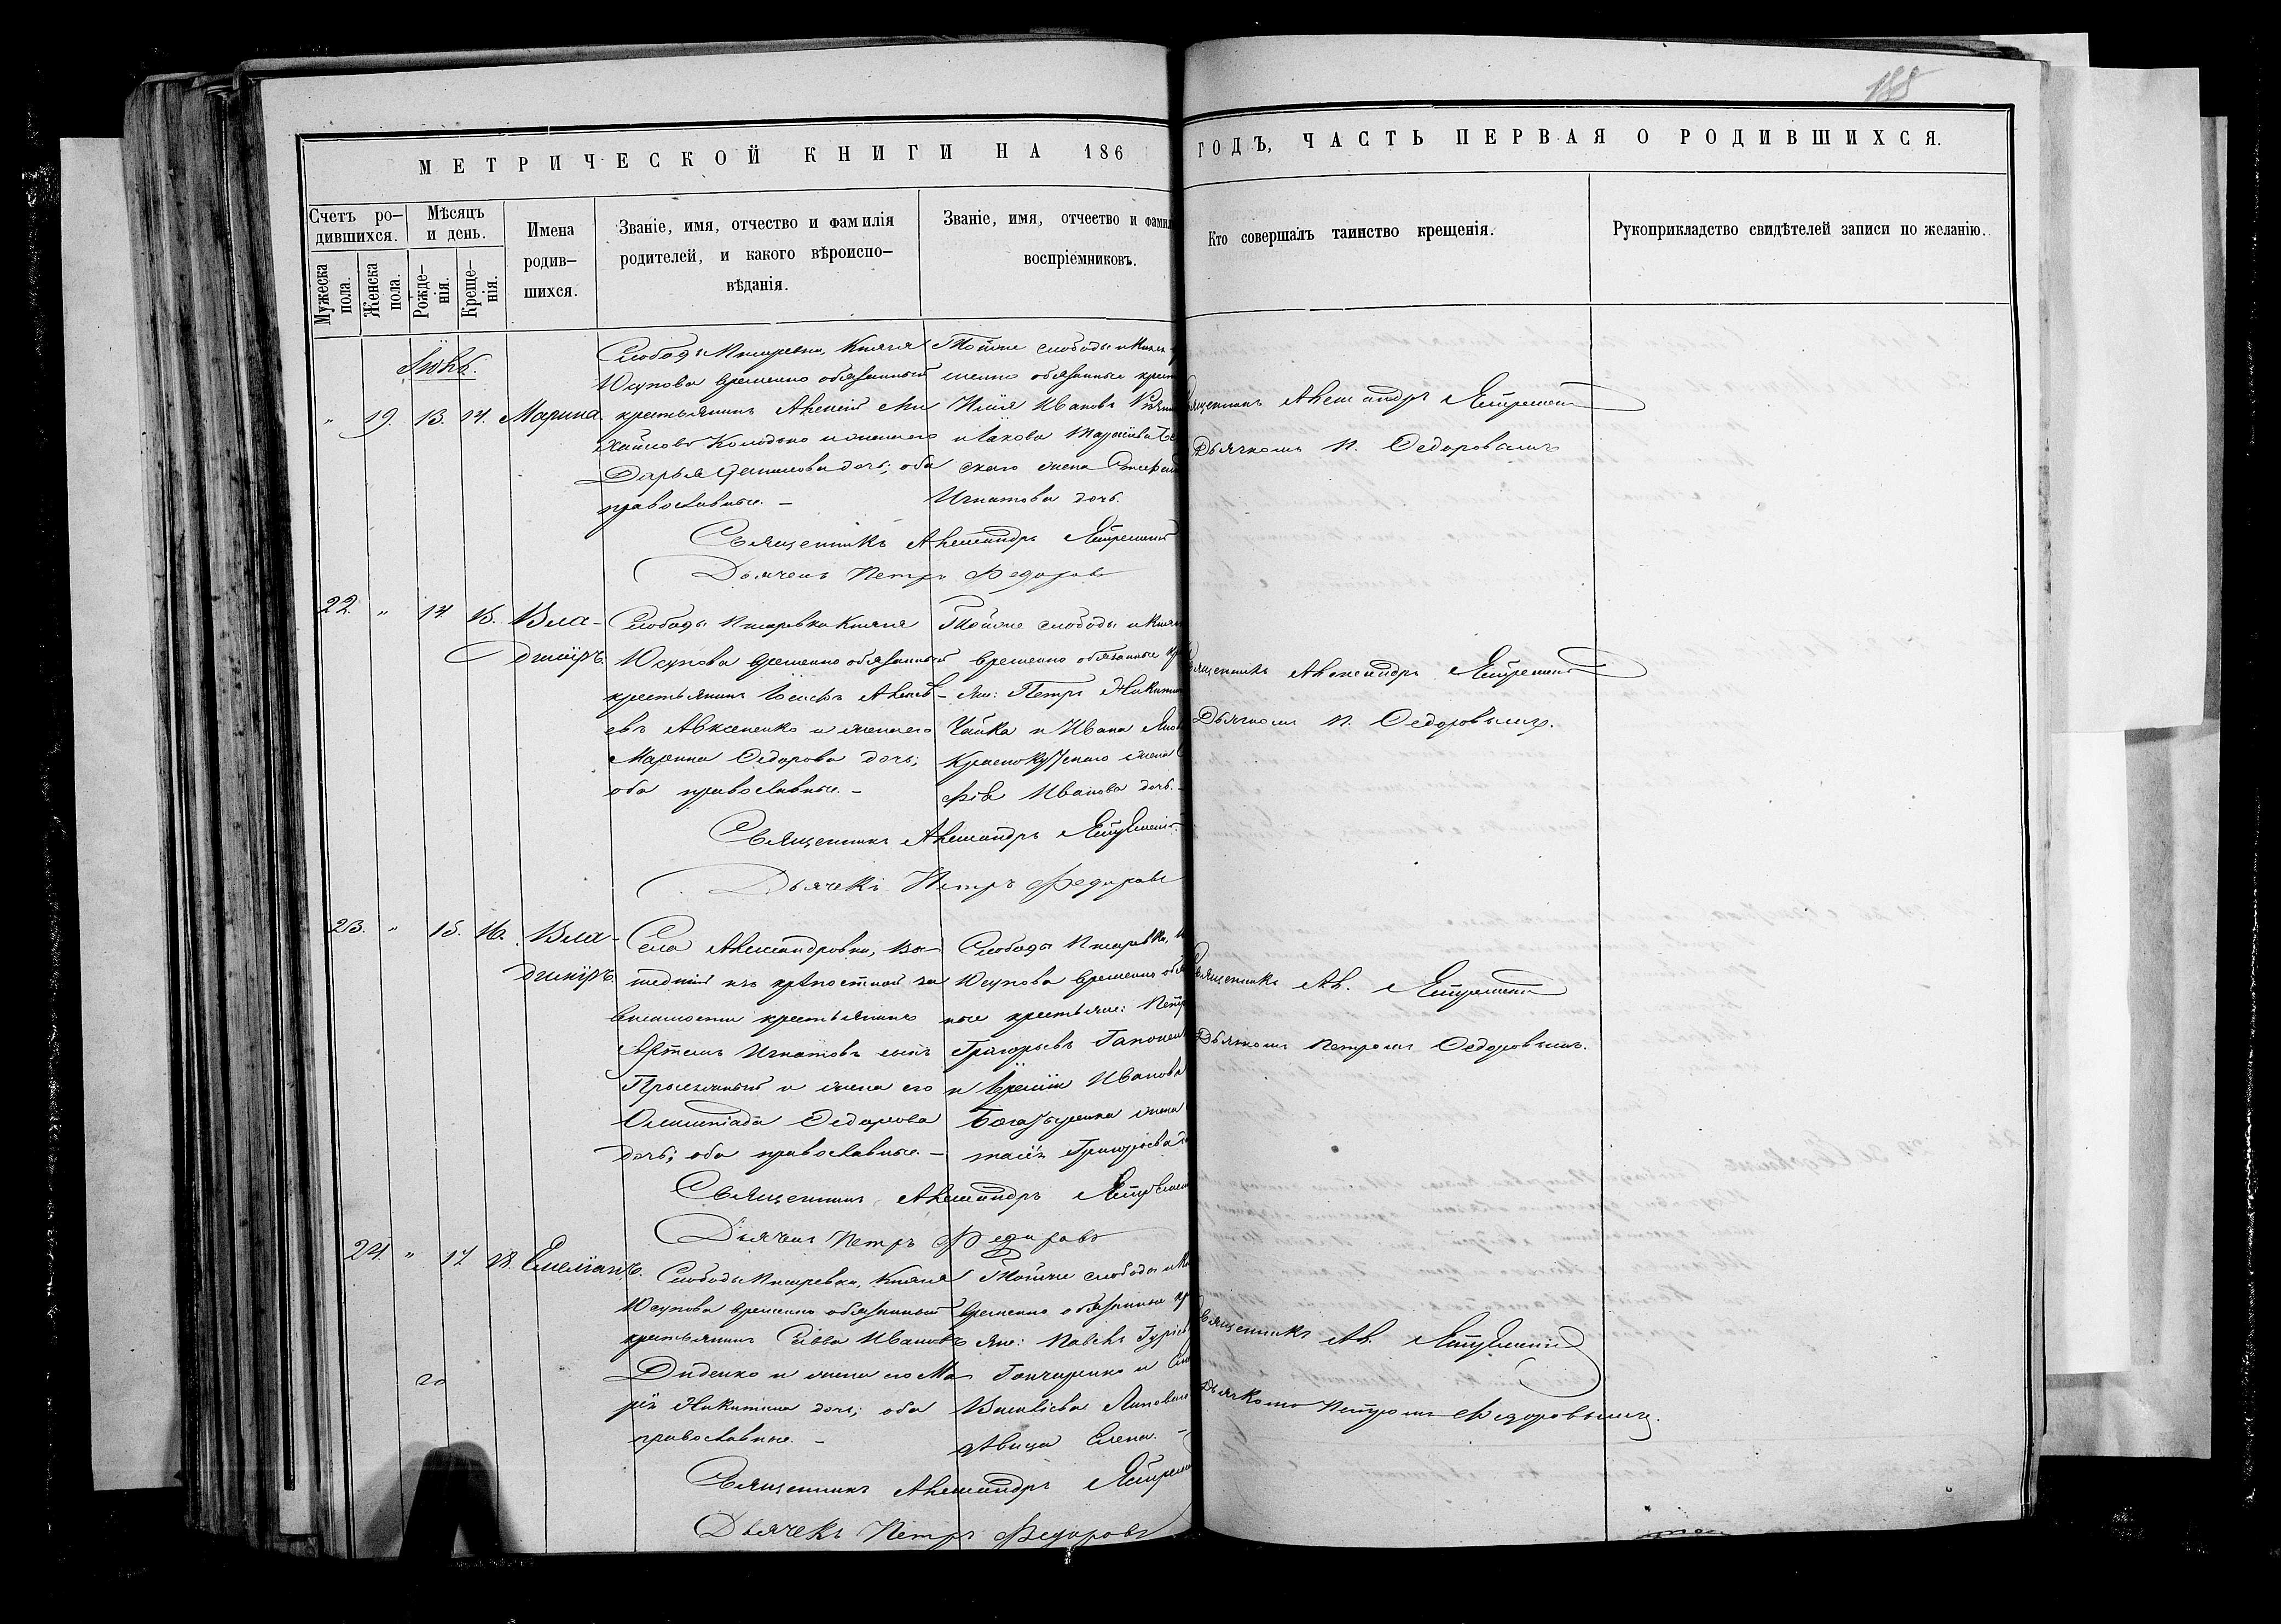 188
МЕТРИЧЕСКОЙ КНИГИ НА 186 ГОДЪ, ЧАСТЬ ПЕРВАЯ О РОДИВШИХСЯ.
Счетъ ро-
дившихся.
Мужеска
пола.
Женска
пола.
Мѣсяцъ
и день.
Рожде-
нія.
Креще-
нія.
Имена
родив-
шихся.
Званіе, имя, отчество и фамилія
родителей, и какого вѣроиспо-
вѣданія.
Званіе, имя, отчество и фамил
воспріемниковъ.
Кто совершалъ таинство крещенія.
Рукоприкладство свидѣтелей записи по желанію.
Іюнь.
" 19. 13. 14. Марина.
Слободы Писаревки, Князя
Юсупова временно обязанный
крестьянинъ Алексій Ми
хайловъ Колодко и жена его
Дарья дочь; оба
православные. –
Тойже слободы и Князя
менно обязанные крест
Илія Ивановъ
и Іакова
скаго жена
Игнатова дочь.
Священникъ Александръ
Дьячкомъ П. Ѳедоровымъ
Священникъ Александръ
Дьячекъ Петръ Федоровъ
22. " 14. 15. Вла-
димиръ.
Слободы Писаревки Князя
Юсупова временно обязанный
крестьянинъ Іосифъ Алексѣ-
евъ Авксененко и жена его
Марина Ѳедорова дочь;
оба православные. –
Тойже слободы и Князя
временно обязанные кр
яне: Петръ Никитинъ
Чайка и Ивана
Краснокутскаго жена
фія Иванова дочь. –
Священникъ Александръ
Дьячкомъ П. Ѳедоровымъ.
Священникъ Александръ
Дьячекъ Петръ Федоровъ
23. " 15. 16. Вла-
димиръ.
Села Александровки, вы-
шедшій изъ крѣпостной за
висимости крестьянинъ
Артемъ Игнатовъ сынъ
и жена его
Олимпіада Ѳедорова
дочь; оба православные. –
Слободы Писаревки,
Юсупова временно обя
ные крестьяне: Петръ
Григорьевъ Гапонен
и Іереміи Иванова
Богатыренка жена
таія Григорьева
Священникъ Ал.
Дьячкомъ Петромъ Ѳедоровымъ.
Священникъ Александръ
Дьячекъ Петръ Федоровъ
24. " 17 18. Емеліанъ.
Слободы Писаревки, Князя
Юсупова временно обязанный
крестьянинъ Савва Ивановъ
Диденко и жена его Ма
рія Никитина дочь; оба
православные. –
Тойже слободы и Кн
временно обязанные кр
яне: Павелъ Гурьевъ
Гончаренко и
Василіева
дѣвица Елена. –
Священникъ Ал.
Дьячкомъ Петромъ Федоровымъ.
Священникъ Александръ
Дьячекъ Петръ Федоровъ